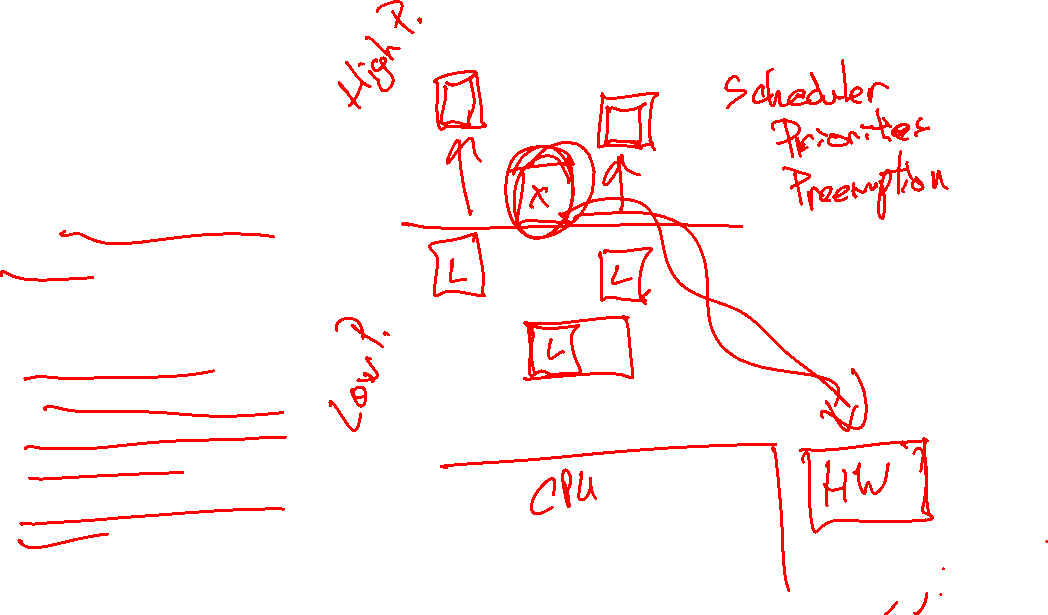 High P.
Scheduler
Priorities
Preemption
X
L
L
L
Low P.
CPU
HW